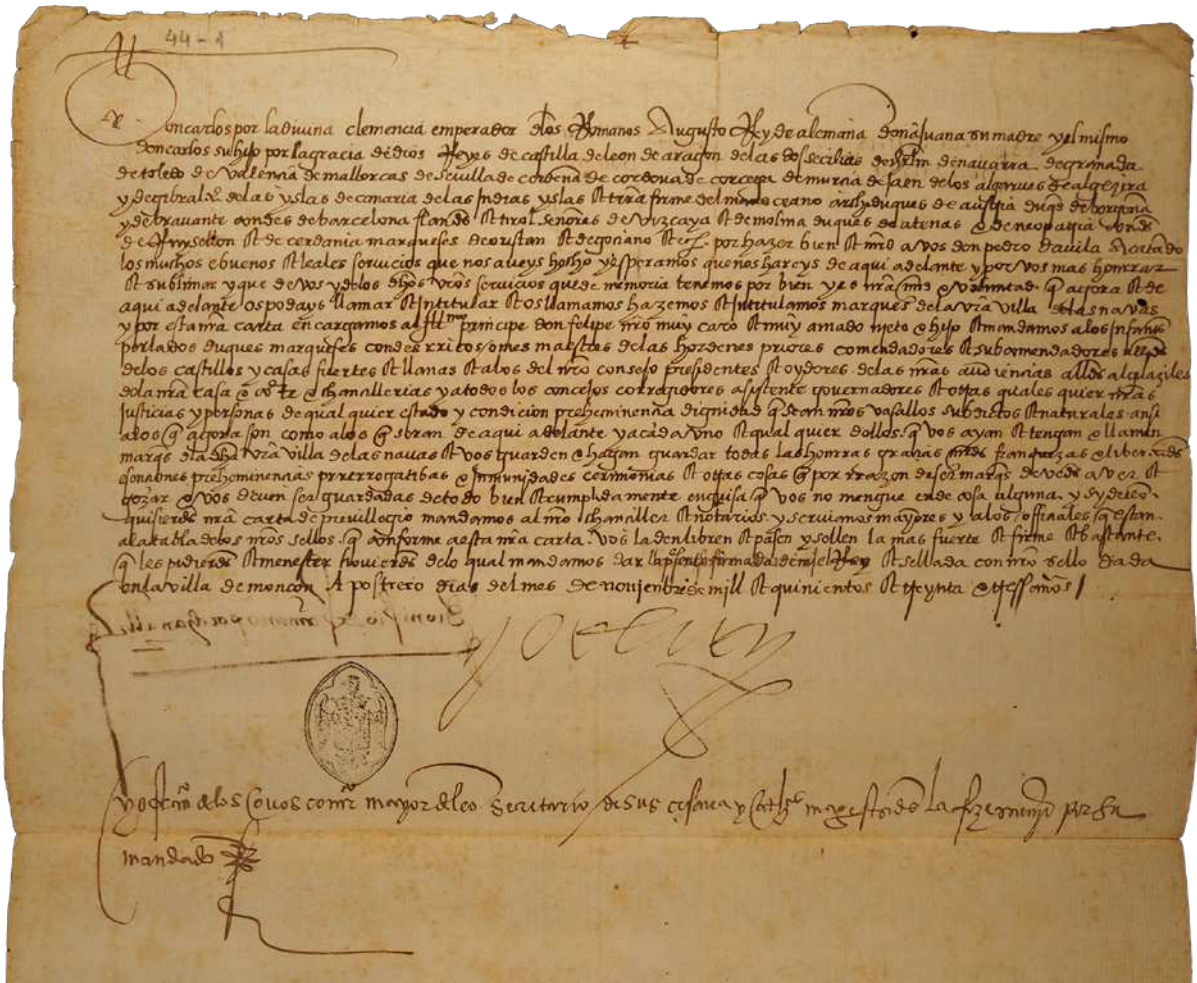 44-1
Don carlos por la divina clemencia emperador delos Romanos Augusto Rey de alemaña doña Juana su madre y el mismo
don carlos su hijo por la gracia de dios Reyes de castilla de leon de aragon de las dos secilias de Jhrlm de navarra de granada
de toledo de valencia de mallorcas de sevilla de cordeña de cordova de corcega de murcia de jaen de los algarves de algezira
y de gibraltar de las yslas de canaria de las indias yslas & tierra firme del mar oceano archyduques de austria duqs de borgoña
y de bravante condes de barcelona flandes & tirol señores de vizcaya & de molina duques de atenas e de neopatria condes
de Ruysellon & de cerdania marqueses de oristan & de gociano & cª. por hazer bien & mrd a vos don pedro davila acatando
los muchos e buenos & leales servicios que nos aveys hecho y esperamos que nos hareys de aqui adelante y por vos mas honrrar
& sublimar y que de vos y de los dhos vros servicios quede memoria tenemos por bien y es nra mrd e voluntad q agora & de
aqui adelante os podays llamar & intitular & os llamamos hazemos & intitulamos marques de la vra villa de las navas
y por esta nra carta encargamos al Illmo principe don felipe nro muy caro & muy amado nieto e hijo & mandamos a los infantes
perlados duques marqueses condes rricos omes maestres de las hordenes priores comendadores & subcomendadores allds
de los castillos y casas fuertes & llanas & a los del nro consejo presidentes & oydores de las nras audiencias allds alguaziles
de la nra casa e corte e chancillerias y a todos los concejos corregidores asistente governadores & otras quales quier nras
Justicias y personas de qual quier estado y condicion preheminencia dignidad q sean nros vasallos subditos & naturales ansi
a los q agora son como a los q seran de aqui adelante y a cada uno & qual quier dellos. q vos ayan & tengan e llamen
marqs de la dha vra villa de las navas & vos guarden e hagan guardar todas las honrras gracias mrds franquezas e libertades
esenciones preheminencias prerrogatibas e inmunidades cerimonias & otras cosas q por rrazon de ser marqs deveds aver &
gozar e vos deven ser guardadas de todo bien & cumplidamente en guisa q vos no mengue ende cosa alguna. y sy dello
quisierds nra carta de previllegio mandamos al nro chanciller & notarios y escrivanos mayores y a los officiales q estan
a la tabla de los nros sellos. q conforme a esta nra carta. vos la den libren & pasen y sellen la mas fuerte & firme & bastante.
q les pidierds & menester hovierds de lo qual mandamos dar la presente firmada de mi el Rey & sellada con nro sello dada
en la villa de monçon A postrero dias del mes de noviembre de mill & quinientos & treynta & tres años
yo el Rey
yo franco de los Covos comor mayor de leon secretario de sus cesarea y Cathcas magestades la fize escrevir por su
mandado